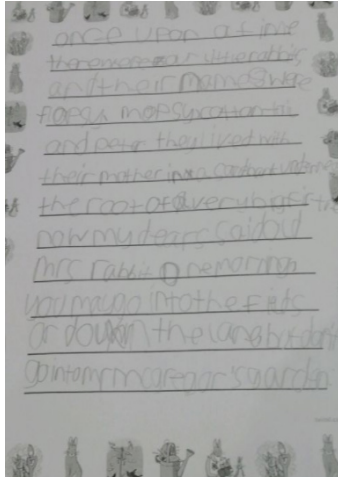 once upon a time
there were four little rabbits
and their names were
flopsy mopsy cotton tail
and peter they lived with
their mother in a sandbank underneath
the root of a very big fir tree
now my dears said old
mrs rabbit One morning
you may go into the fields
or down the lane but don't
go into mr mcgregor's garden